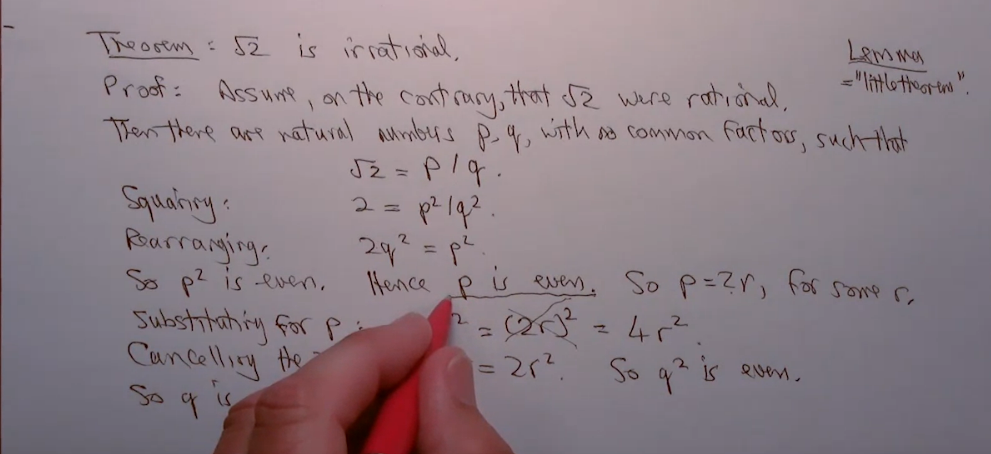 Theorem: √2 is irrational.
Lemma
= "little theorem".
Proof: Assume, on the contrary, that √2 were rational.
Then there are natural numbers p, q, with no common factors, such that
√2 = p/q.
Squaring: 2 = p²/q².
Rearranging: 2q² = p².
So p² is even. Hence p is even. So p=2r, for some r.
Substituting for p: ² = (2r)² = 4r².
Cancelling the = 2r². So q² is even.
So q is